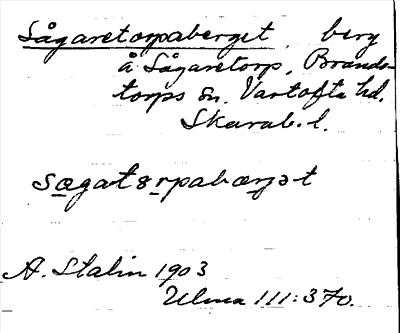 Sågaretorpaberget, berg
å Sågaretorp, Brands-
torps sn. Vartofta hd.
Skarab. l.
sægat8rpabærjət
A. Stalin 1903
Ulma 111:370.